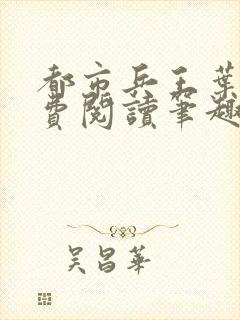 都市兵王葉
費閱讀筆趣
吳昌華